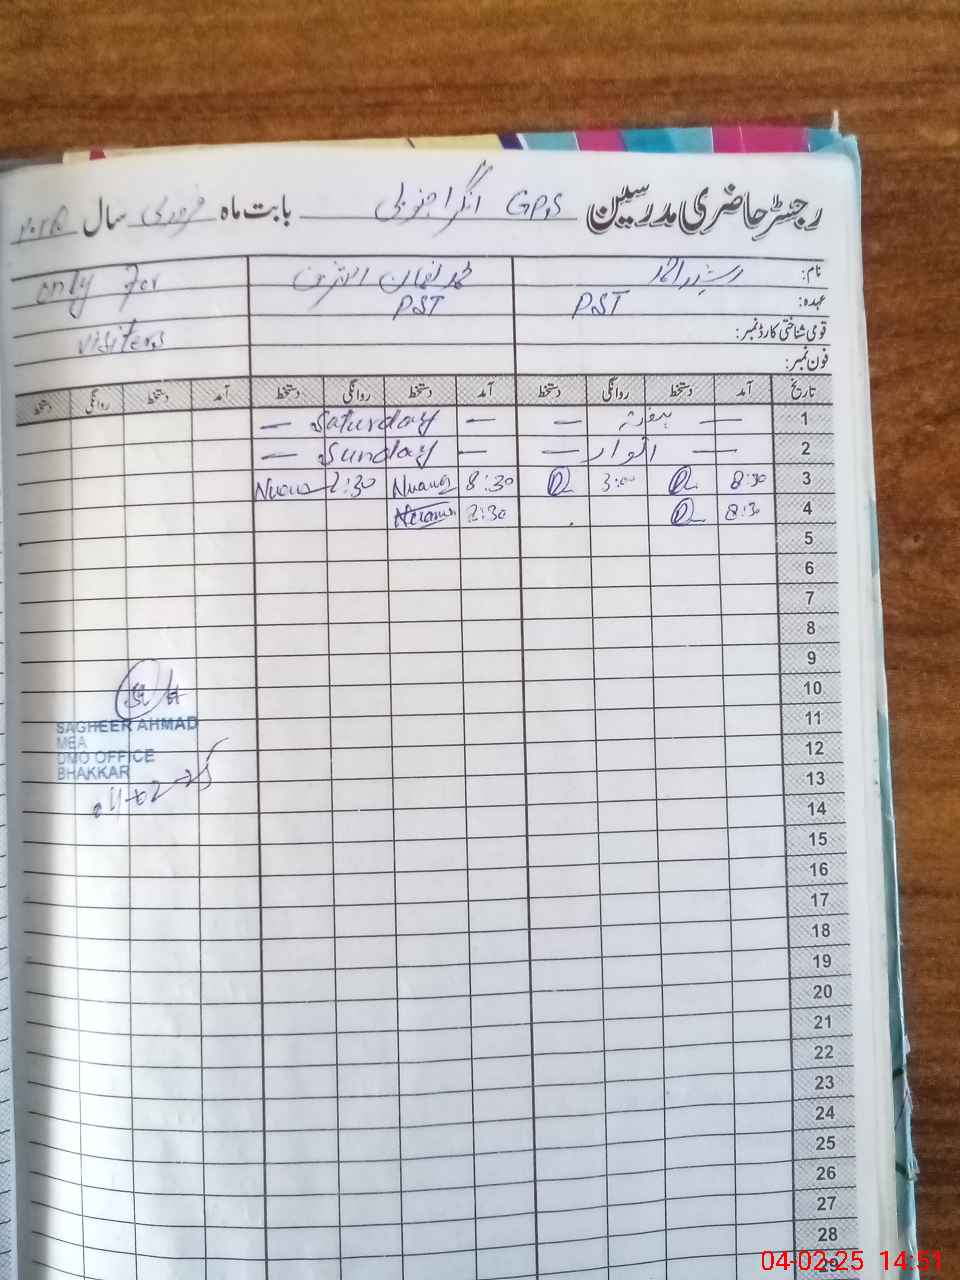 رجسٹر حاضری مدرسین GPS انگرا جنوبی بابت ماہ فروری سال
نام: رشید احمد محمد نعمان only for
عہدہ: PST PST
visiters
قومی شناختی کارڈ نمبر:
فون نمبر:
تاریخ آمد دستخط روانگی دستخط آمد دستخط روانگی دستخط آمد دستخط روانگی دستخط
1 — ہفتہ — — Saturday —
2 — اتوار — — Sunday —
3 8:30 3:00 8:30 2:30
4 8:30
5
6
7
8
9
10
11
12
13
14
15
16
17
18
19
20
21
22
23
24
25
26
27
28
29
SAGHEER AHMAD
MEA
DMO OFFICE
BHAKKAR
04-02-25
04-02-25 14:51